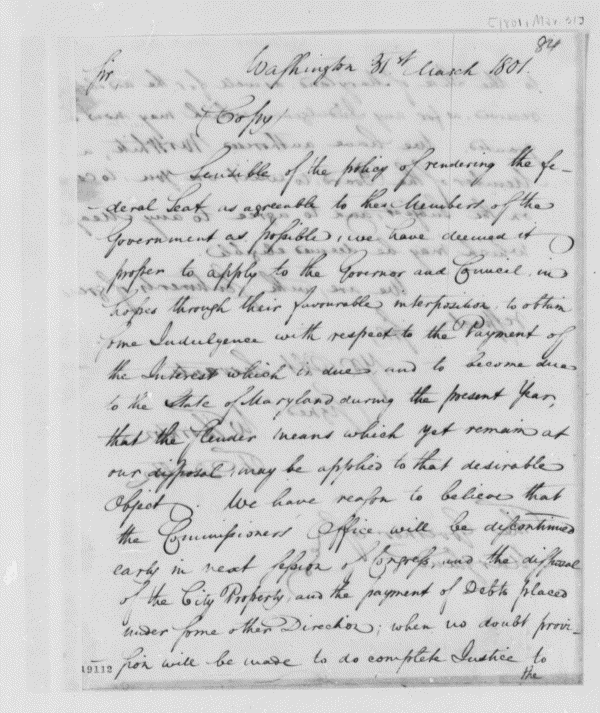 [1801, Mar. 31]
84
Sir Washington 31st March 1801.
(Copy)
Sensible of the policy of rendering the fe-
deral Seat as agreeable to the Members of the
Government as possible, we have deemed it
proper to apply to the Governor and Council, in
hopes through their favourable interposition, to obtain
some Indulgence with respect to the Payment of
the Interest which is due and to become due
to the State of Maryland during the present Year,
that the slender means which yet remain at
our disposal, may be applied to that desirable
Object. We have reason to believe that
the Commissioners Office will be discontinued
early in next Session of Congress, and the disposal
of the City Property, and the payment of Debts placed
under some other Direction; when no doubt provi-
sion will be made to do complete Justice to
the
19112